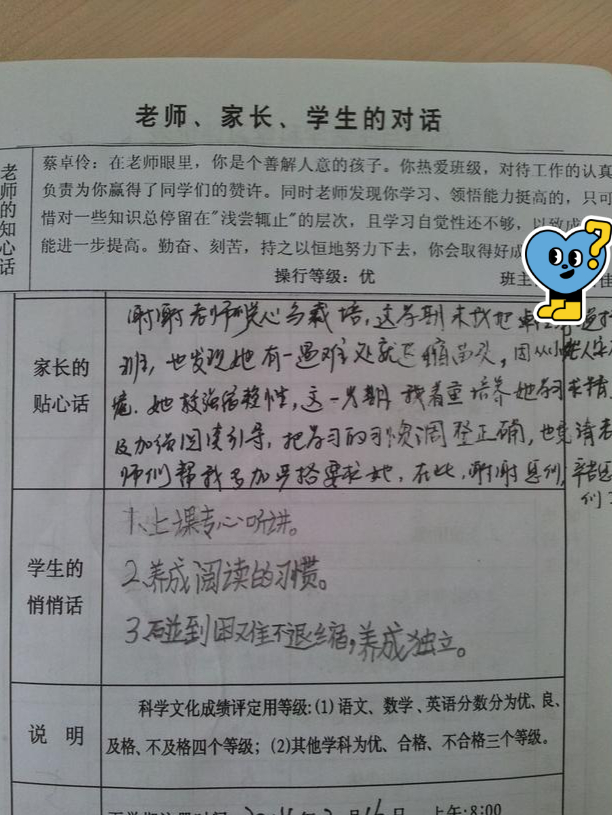 老师、家长、学生的对话
老师的知心话
蔡卓伶：在老师眼里，你是个善解人意的孩子。你热爱班级，对待工作的认真
负责为你赢得了同学们的赞许。同时老师发现你学习、领悟能力挺高的，只可
惜对一些知识总停留在"浅尝辄止"的层次，且学习自觉性还不够，以致成
能进一步提高。勤奋、刻苦，持之以恒地努力下去，你会取得好成
操行等级：优
班主
家长的
贴心话
谢谢老师悉心与栽培，这学期末我把
班，也发现她有一遇难处就退缩
她较强依赖性，这一学期我着重培养她学习
及加强阅读引导，把学习的习惯调整正确，也
师们帮我多加严格要求她，在此，谢谢恩师们
们
学生的
悄悄话
1、上课专心听讲。
2.养成阅读的习惯。
3.碰到困难不退缩，养成独立。
说 明
科学文化成绩评定用等级：(1) 语文、数学、英语分数分为优、良、
及格、不及格四个等级；(2)其他学科为优、合格、不合格三个等级。
上午：8:00